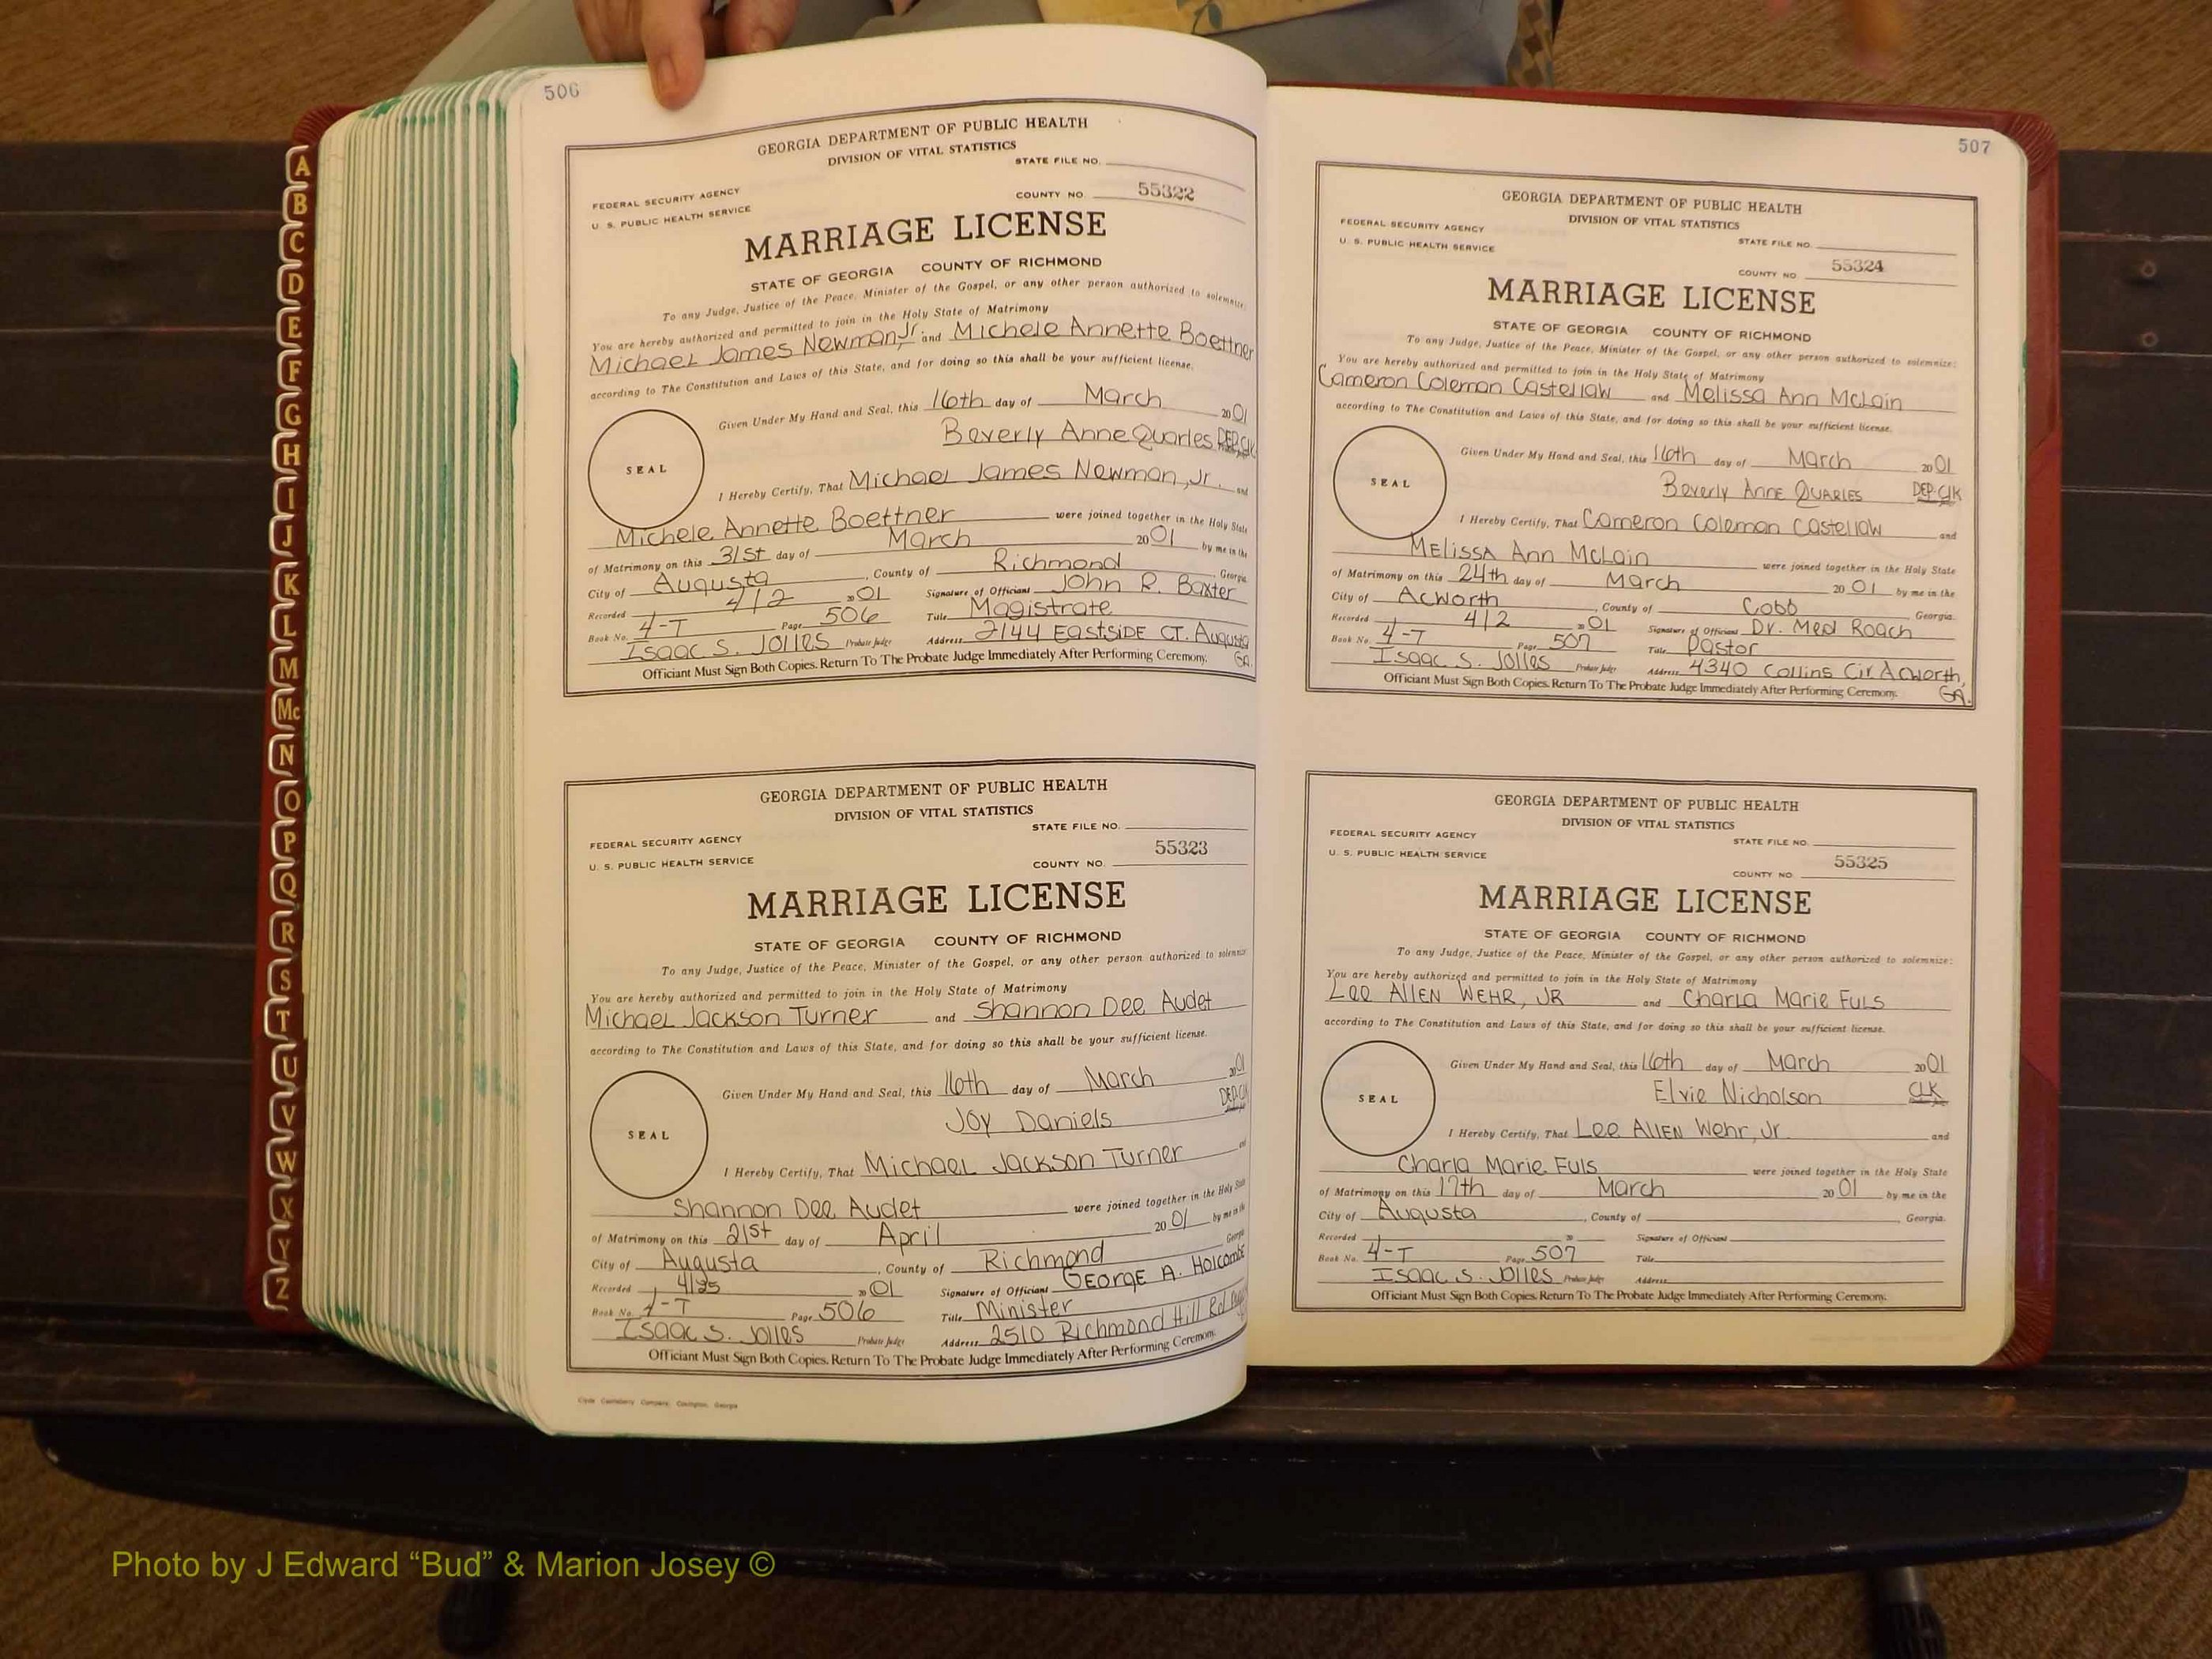 506
GEORGIA DEPARTMENT OF PUBLIC HEALTH
DIVISION OF VITAL STATISTICS
STATE FILE NO.
FEDERAL SECURITY AGENCY
U. S. PUBLIC HEALTH SERVICE
COUNTY NO. 55322
MARRIAGE LICENSE
STATE OF GEORGIA COUNTY OF RICHMOND
To any Judge, Justice of the Peace, Minister of the Gospel, or any other person authorized to solemnize:
You are hereby authorized and permitted to join in the Holy State of Matrimony
Michael James Newman, Jr. and Michele Annette Boettner
according to The Constitution and Laws of this State, and for doing so this shall be your sufficient license.
Given Under My Hand and Seal, this 16th day of March 2001
Beverly Anne Quarles DEP. Clk
SEAL
I Hereby Certify, That Michael James Newman, Jr. and
Michele Annette Boettner were joined together in the Holy State
of Matrimony on this 31st day of March 2001 by me in the
City of Augusta, County of Richmond Georgia
Recorded 4/2 2001 Signature of Officiant John R. Baxter
Book No. 4-T Page 506 Title Magistrate
Isaac S. Jolles Probate Judge Address 2144 EastSIDE CT. Augusta GA.
Officiant Must Sign Both Copies. Return To The Probate Judge Immediately After Performing Ceremony.
GEORGIA DEPARTMENT OF PUBLIC HEALTH
DIVISION OF VITAL STATISTICS
STATE FILE NO.
FEDERAL SECURITY AGENCY
U. S. PUBLIC HEALTH SERVICE
COUNTY NO. 55323
MARRIAGE LICENSE
STATE OF GEORGIA COUNTY OF RICHMOND
To any Judge, Justice of the Peace, Minister of the Gospel, or any other person authorized to solemnize
You are hereby authorized and permitted to join in the Holy State of Matrimony
Michael Jackson Turner and Shannon Dee Audet
according to The Constitution and Laws of this State, and for doing so this shall be your sufficient license.
Given Under My Hand and Seal, this 16th day of March 2001
Joy Daniels DEP. Clk
SEAL
I Hereby Certify, That Michael Jackson Turner and
Shannon Dee Audet were joined together in the Holy State
of Matrimony on this 21st day of April 2001 by me in the
City of Augusta, County of Richmond Georgia
Recorded 4/25 2001 Signature of Officiant George A. Holcombe
Book No. 4-T Page 506 Title Minister
Isaac S. Jolles Probate Judge Address 2510 Richmond Hill Rd
Officiant Must Sign Both Copies. Return To The Probate Judge Immediately After Performing Ceremony.
Clyde Castleberry Company, Covington, Georgia
507
GEORGIA DEPARTMENT OF PUBLIC HEALTH
DIVISION OF VITAL STATISTICS
FEDERAL SECURITY AGENCY
U. S. PUBLIC HEALTH SERVICE
STATE FILE NO.
COUNTY NO. 55324
MARRIAGE LICENSE
STATE OF GEORGIA COUNTY OF RICHMOND
To any Judge, Justice of the Peace, Minister of the Gospel, or any other person authorized to solemnize:
You are hereby authorized and permitted to join in the Holy State of Matrimony
Cameron Coleman Castellaw and Melissa Ann McLain
according to The Constitution and Laws of this State, and for doing so this shall be your sufficient license.
Given Under My Hand and Seal, this 16th day of March 2001
Beverly Anne Quarles DEP. Clk
SEAL
I Hereby Certify, That Cameron Coleman Castellaw and
Melissa Ann McLain were joined together in the Holy State
of Matrimony on this 24th day of March 2001 by me in the
City of Acworth, County of Cobb Georgia.
Recorded 4/2 2001 Signature of Officiant Dr. Med Roach
Book No. 4-T Page 507 Title Pastor
Isaac S. Jolles Probate Judge Address 4340 Collins Cir Acworth, GA.
Officiant Must Sign Both Copies. Return To The Probate Judge Immediately After Performing Ceremony.
GEORGIA DEPARTMENT OF PUBLIC HEALTH
DIVISION OF VITAL STATISTICS
FEDERAL SECURITY AGENCY
U. S. PUBLIC HEALTH SERVICE
STATE FILE NO.
COUNTY NO. 55325
MARRIAGE LICENSE
STATE OF GEORGIA COUNTY OF RICHMOND
To any Judge, Justice of the Peace, Minister of the Gospel, or any other person authorized to solemnize:
You are hereby authorized and permitted to join in the Holy State of Matrimony
Lee Allen Wehr, JR and Charla Marie Fuls
according to The Constitution and Laws of this State, and for doing so this shall be your sufficient license.
Given Under My Hand and Seal, this 16th day of March 2001
Elvie Nicholson CLK
SEAL
I Hereby Certify, That Lee Allen Wehr, Jr. and
Charla Marie Fuls were joined together in the Holy State
of Matrimony on this 17th day of March 2001 by me in the
City of Augusta, County of Georgia.
Recorded 20 Signature of Officiant
Book No. 4-T Page 507 Title
Isaac S. Jolles Probate Judge Address
Officiant Must Sign Both Copies. Return To The Probate Judge Immediately After Performing Ceremony.
A
B
C
D
E
F
G
H
I
J
K
L
M
Mc
N
O
P
Q
R
S
T
U
V
W
X
Y
Z
Photo by J Edward “Bud” & Marion Josey ©